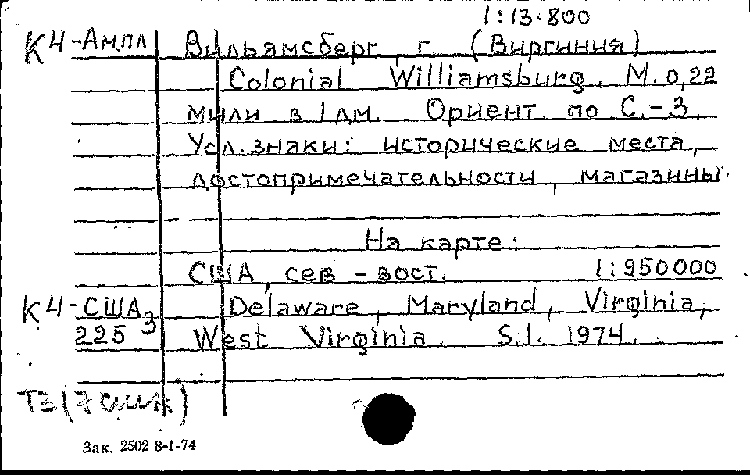 1:13.800
К4-Ам.пл Вильямсберг, г. (Виргиния)
Colonial Williamsburg. М. 0,22
мили в 1 дм. Ориент. по С.-З.
Усл. знаки: исторические места,
достопримечательности, магазины.
На карте:
США, сев-вост. 1:950000
К4-США3 Delaware, Maryland, Virginia,
225 West Virginia. S.l. 1974.
Зак. 2502 8-I-74